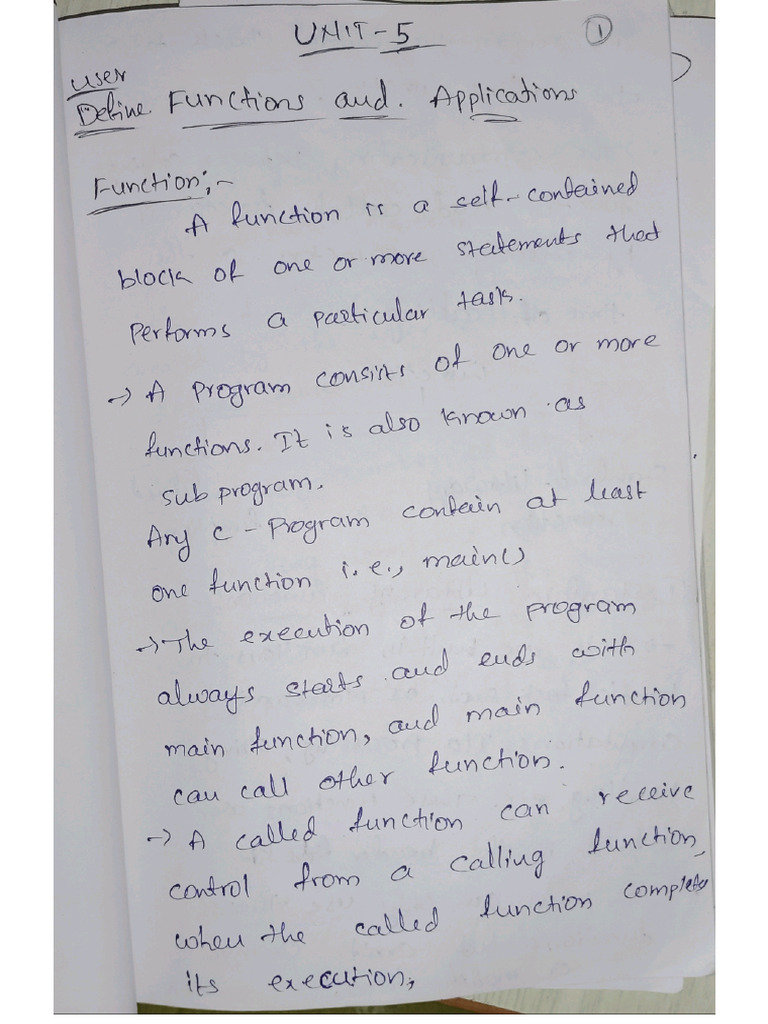 UNIT-5
1
User
Define Functions and. Applications
Function:-
A function is a self-contained
block of one or more statements that
Performs a particular task.
→ A program consists of one or more
functions. It is also known as
sub program.
Any C-Program contain at least
one function i.e., main()
→ The execution of the program
always starts and ends with
main function, and main function
can call other function.
→ A called function can receive
control from a calling function,
when the called function complete
its execution,